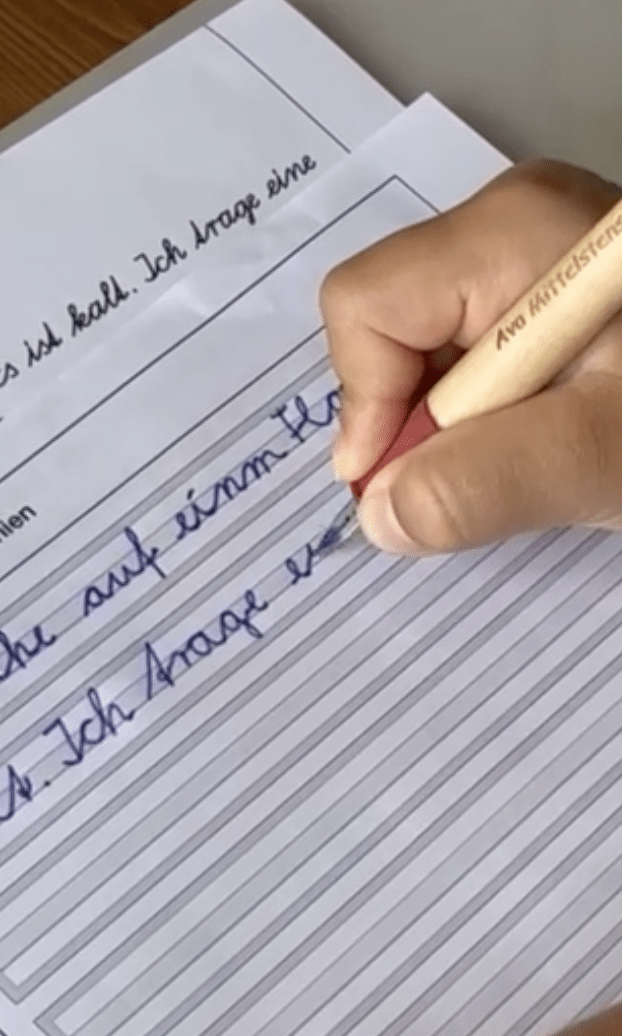 s ist kalt. Ich trage eine
auf einm
Ich trage
Ava Mittelstens